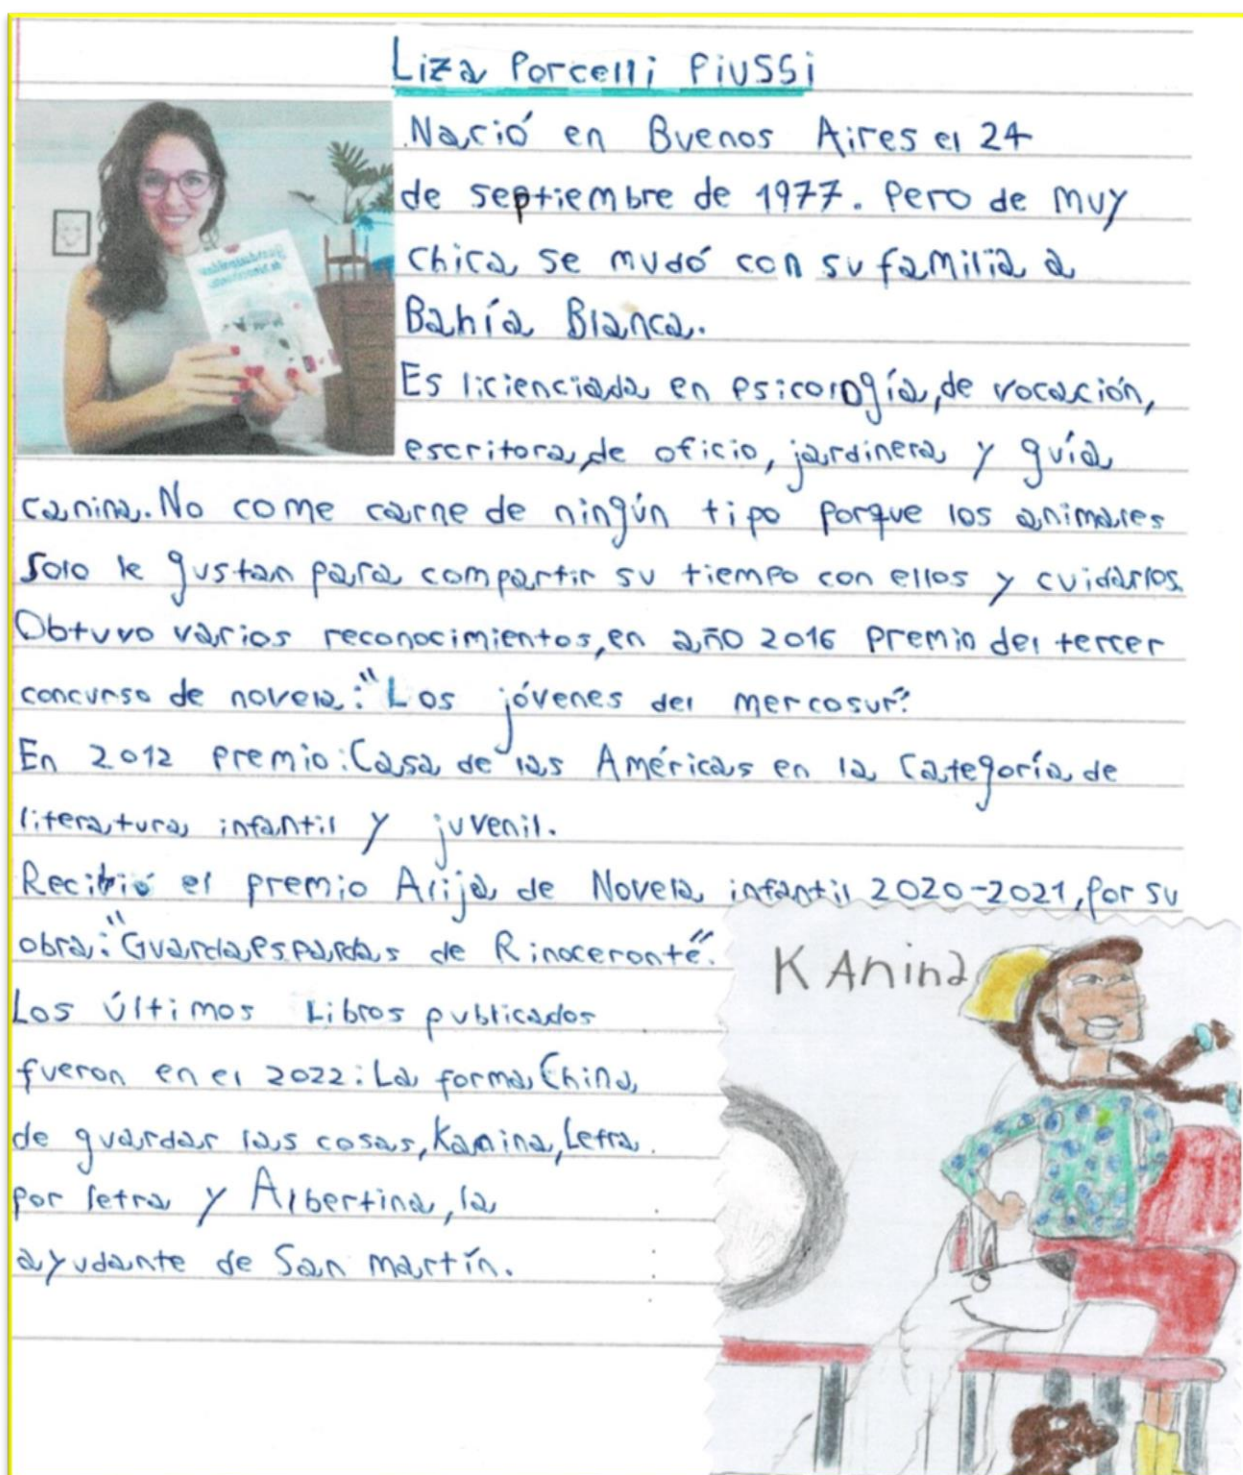 Liza Porcelli Piussi
Nació en Buenos Aires el 24
de septiembre de 1977. Pero de muy
chica se mudó con su familia a
Bahía Blanca.
Es licienciada en psicología, de vocación,
escritora, de oficio, jardinera y guía
canina. No come carne de ningún tipo porque los animales
solo le gustan para compartir su tiempo con ellos y cuidarlos.
Obtuvo varios reconocimientos, en año 2016 premio del tercer
concurso de novela: "Los jóvenes del mercosur".
En 2012 premio: Casa de las Américas en la Categoría de
literatura infantil y juvenil.
Recibió el premio Alija de Novela infantil 2020-2021, por su
obra: "Guardaespaldas de Rinoceronte".
Los últimos Libros publicados
fueron en el 2022: La forma China
de guardar las cosas, Kanina, Letra
por letra y Albertina, la
ayudante de San martín.
KAnina